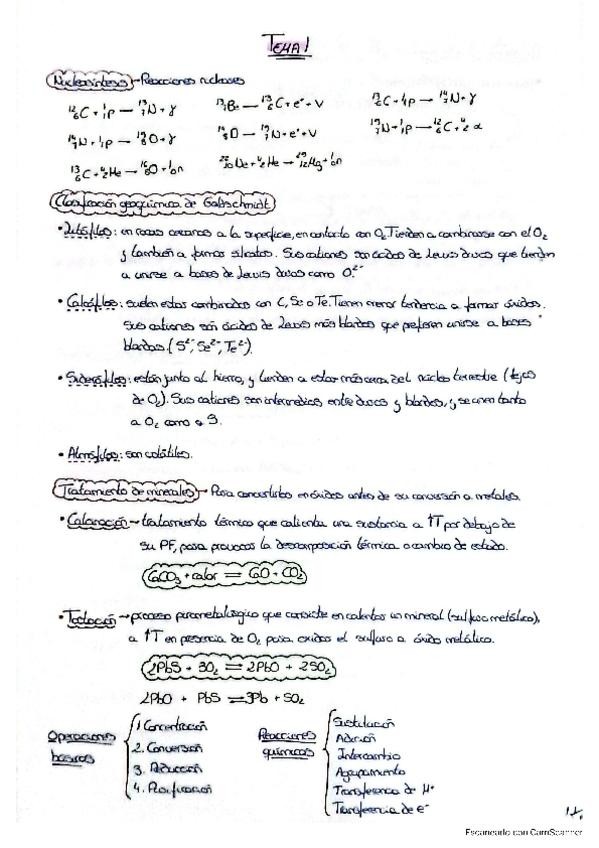 TEMA 1
Nucleosíntesis → Reacciones nucleares
¹²₆C + ¹₁p → ¹³₇N + γ
¹³₇N → ¹³₆C + e⁺ + ν
¹³₆C + ¹₁p → ¹⁴₇N + γ
¹⁴₇N + ¹₁p → ¹⁵₈O + γ
¹⁵₈O → ¹⁵₇N + e⁺ + ν
¹⁵₇N + ¹₁p → ¹²₆C + ⁴₂α
¹³₆C + ⁴₂He → ¹⁶₈O + ¹₀n
+ ⁴₂He → Mg + ¹₀n
Clasificación geoquímica de Goldschmidt
• Litófilos: en rocas cercanas a la superficie, en contacto con O₂. Tienden a combinarse con el O₂
y también a formar silicatos. Sus cationes son ácidos de Lewis duros que tienden
a unirse a bases de Lewis duras como O²⁻
• Calcófilos: suelen estar combinados con Se o Te. Tienen menor tendencia a formar óxidos.
Sus cationes son ácidos de Lewis más blandos que prefieren unirse a bases
blandas. (S²⁻, Se²⁻, Te²⁻)
• Siderófilos: están junto al hierro, y tienden a estar más cerca del núcleo terrestre (lejos
de O₂). Sus cationes son intermedios entre duros y blandos, y se unen tanto
a O₂ como a S.
• Atmófilos: son volátiles.
Tratamiento de minerales → Para convertirlos en óxidos antes de su conversión a metales.
• Calcinación → tratamiento térmico que calienta una sustancia a ↑T por debajo de
su PF, para provocar la descomposición térmica o cambio de estado.
CaCO₃ + calor ⇌ CaO + CO₂
• Tostación → proceso pirometalúrgico que consiste en calentar un mineral (sulfuro metálico),
a ↑T en presencia de O₂ para oxidar el sulfuro a óxido metálico.
2PbS + 3O₂ ⇌ 2PbO + 2SO₂
2PbO + PbS ⇌ 3Pb + SO₂
Operaciones básicas
1. Concentración
2. Conversión
3. Reducción
4. Purificación
Reacciones químicas
Sustitución
Adición
Intercambio
Agrupamiento
Transferencia de H⁺
Transferencia de e⁻
Escaneado con CamScanner